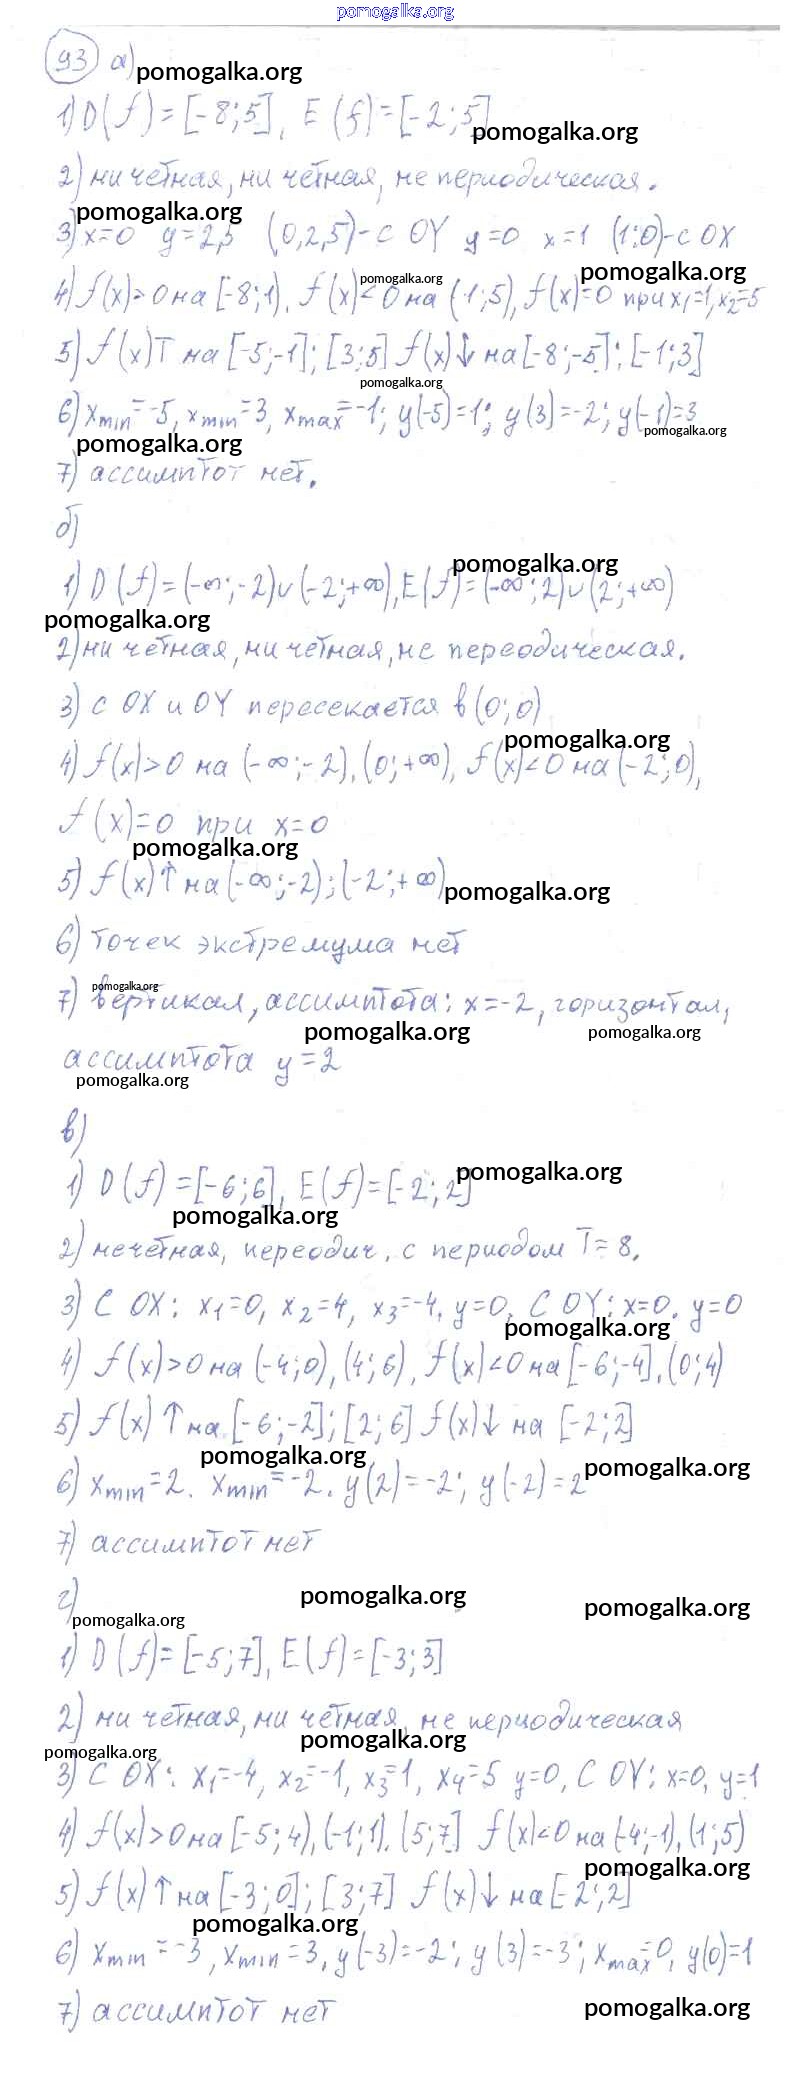 pomogalka.org
93 а) pomogalka.org
1) D(f)=[-8;5], E(f)=[-2;5] pomogalka.org
2) ни чётная, ни чётная, не периодическая.
pomogalka.org
3) x=0 y=2,5 (0,2,5)-с OY y=0 x=1 (1;0)-с OX
pomogalka.org pomogalka.org
4) f(x)>0 на [-8;1), f(x)<0 на (1;5), f(x)=0 при x₁=1, x₂=5
5) f(x)↑ на [-5;-1]; [3;5] f(x)↓ на [-8;-5]; [-1;3]
pomogalka.org
6) xmin=-5, xmin=3, xmax=-1; y(-5)=1; y(3)=-2; y(-1)=3
pomogalka.org pomogalka.org
7) ассимптот нет.
б)
pomogalka.org
1) D(f)=(-∞;-2)∪(-2;+∞), E(f)=(-∞;2)∪(2;+∞)
pomogalka.org
2) ни чётная, ни чётная, не переодическая.
3) с OX и OY пересекается в (0;0)
pomogalka.org
4) f(x)>0 на (-∞;-2), (0;+∞), f(x)<0 на (-2;0),
f(x)=0 при x=0
pomogalka.org
5) f(x)↑ на (-∞;-2); (-2;+∞) pomogalka.org
6) точек экстремума нет
pomogalka.org
7) вертикал, ассимптота: x=-2, горизонтал,
pomogalka.org pomogalka.org
ассимптота y=2
pomogalka.org
в)
1) D(f)=[-6;6], E(f)=[-2;2] pomogalka.org
pomogalka.org
2) нечётная, переодич, с периодом T=8.
3) С OX: x₁=0, x₂=4, x₃=-4, y=0, С OY: x=0, y=0
pomogalka.org
4) f(x)>0 на (-4;0), (4;6), f(x)<0 на [-6;-4], (0;4)
5) f(x)↑ на [-6;-2]; [2;6] f(x)↓ на [-2;2]
pomogalka.org pomogalka.org
6) xmin=2. xmin=-2. y(2)=-2; y(-2)=2
7) ассимптот нет
г) pomogalka.org pomogalka.org
pomogalka.org
1) D(f)=[-5;7], E(f)=[-3;3]
2) ни чётная, ни чётная, не периодическая
pomogalka.org pomogalka.org
3) С OX: x₁=-4, x₂=-1, x₃=1, x₄=5 y=0, С OY: x=0, y=1
4) f(x)>0 на [-5;4), (-1;1), (5;7] f(x)<0 на (-4;-1), (1;5)
pomogalka.org
5) f(x)↑ на [-3;0]; [3;7] f(x)↓ на [-2;2]
pomogalka.org
6) xmin=-3, xmin=3, y(-3)=-2; y(3)=-3; xmax=0, y(0)=1
7) ассимптот нет pomogalka.org